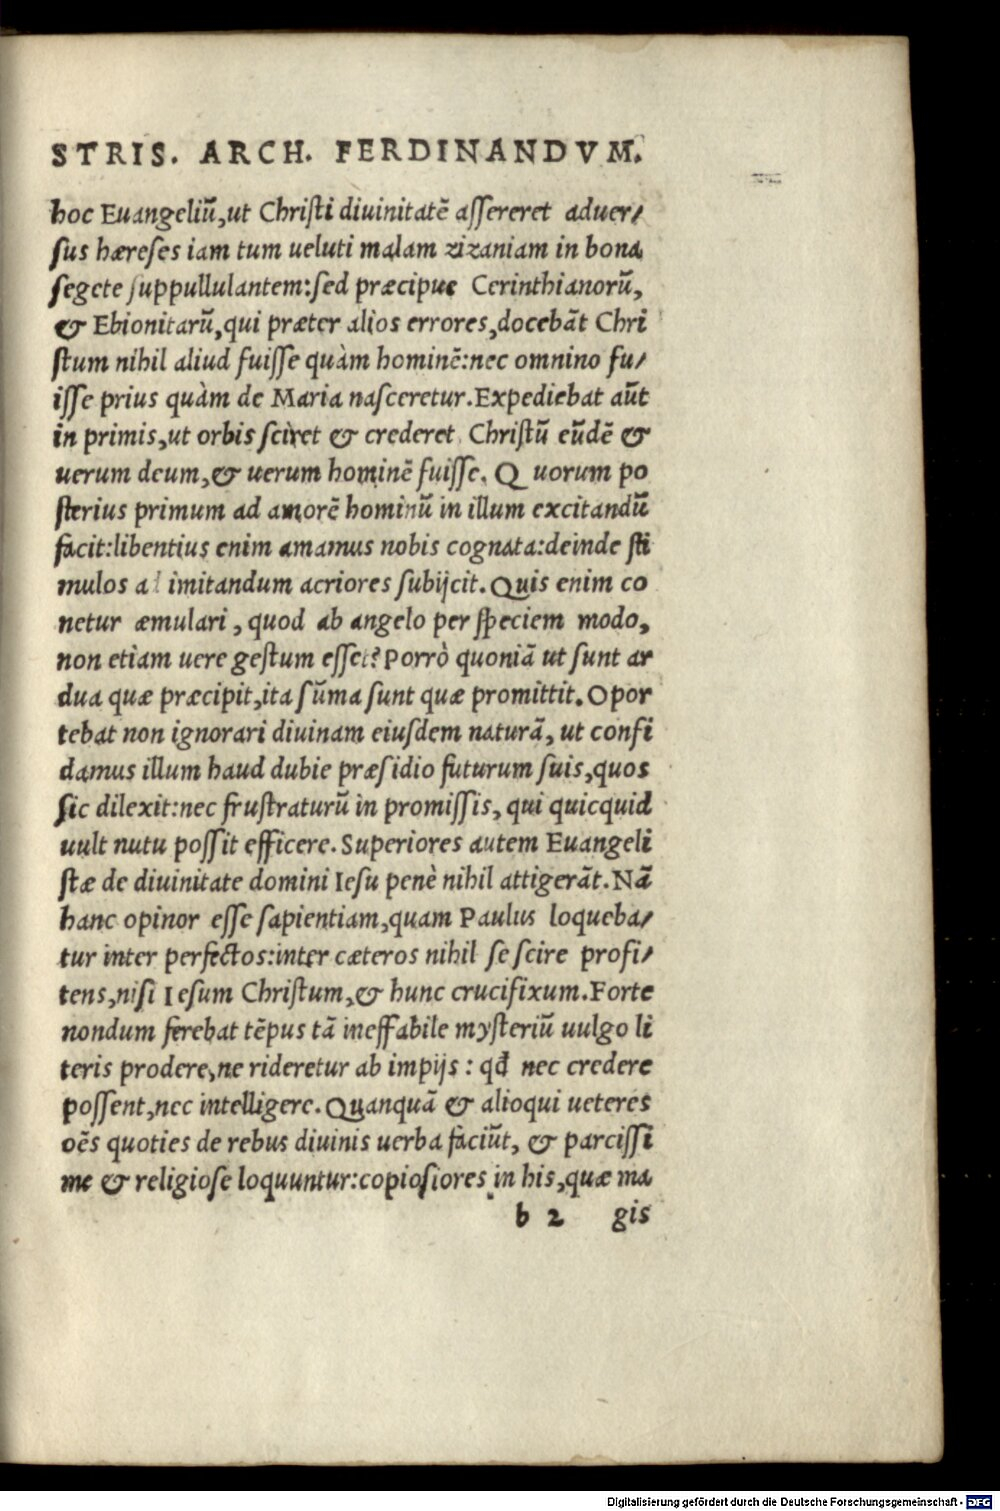 STRIS. ARCH. FERDINANDVM.
hoc Euangeliū,ut Chriſti diuinitatē aſſereret aduer/
ſus hæreſes iam tum ueluti malam zizaniam in bona
ſegete ſuppullulantem:ſed præcipue Cerinthianorū,
& Ebionitarū,qui præter alios errores,docebāt Chri
ſtum nihil aliud fuiſſe quàm hominē:nec omnino fu/
iſſe prius quàm de Maria naſceretur.Expediebat aūt
in primis,ut orbis ſciret & crederet Chriſtū eūdē &
uerum deum,& uerum hominē fuiſſe. Quorum po
ſterius primum ad amorē hominū in illum excitandū
facit:libentius enim amamus nobis cognata:deinde ſti
mulos ad imitandum acriores ſubijcit.Quis enim co
netur æmulari, quod ab angelo per ſpeciem modo,
non etiam uere geſtum eſſet?Porrò quoniā ut ſunt ar
dua quæ præcipit,ita ſūma ſunt quæ promittit.Opor
tebat non ignorari diuinam eiuſdem naturā, ut confi
damus illum haud dubie præſidio futurum ſuis,quos
ſic dilexit:nec fruſtraturū in promiſſis, qui quicquid
uult nutu poſſit efficere.Superiores autem Euangeli
ſtæ de diuinitate domini Ieſu penè nihil attigerāt.Nā
hanc opinor eſſe ſapientiam,quam Paulus loqueba/
tur inter perfectos:inter cæteros nihil ſe ſcire profi/
tens,niſi Ieſum Chriſtum,& hunc crucifixum.Forte
nondum ferebat tēpus tā ineffabile myſteriū uulgo li
teris prodere,ne rideretur ab impijs : qđ nec credere
poſſent,nec intelligere.Quanquā & alioqui ueteres
oēs quoties de rebus diuinis uerba faciūt, & parciſſi
me & religioſe loquuntur:copioſiores in his,quæ ma
b 2 gis
Digitalisierung gefördert durch die Deutsche Forschungsgemeinschaft - DFG